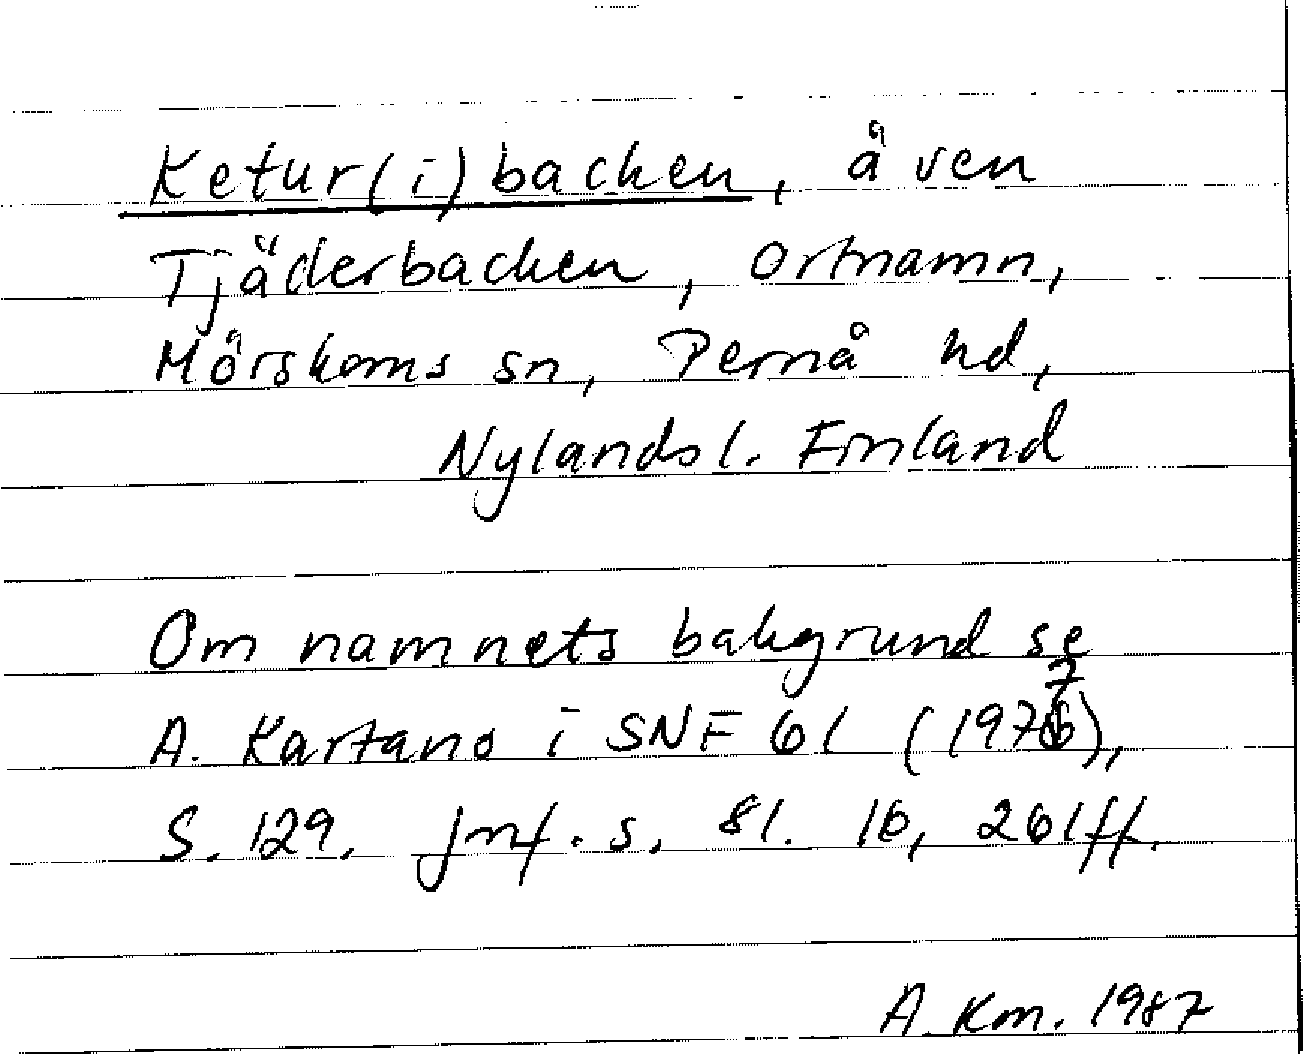 Ketur(i)backen, även
Tjäderbacken, ortnamn,
Mörskoms sn, Pernå hd,
Nylands l. Finland
Om namnets bakgrund se
A. Kartano i SNF 61 (1977),
S. 129. Jmf. s. 81. 16, 261ff.
A. Km. 1987